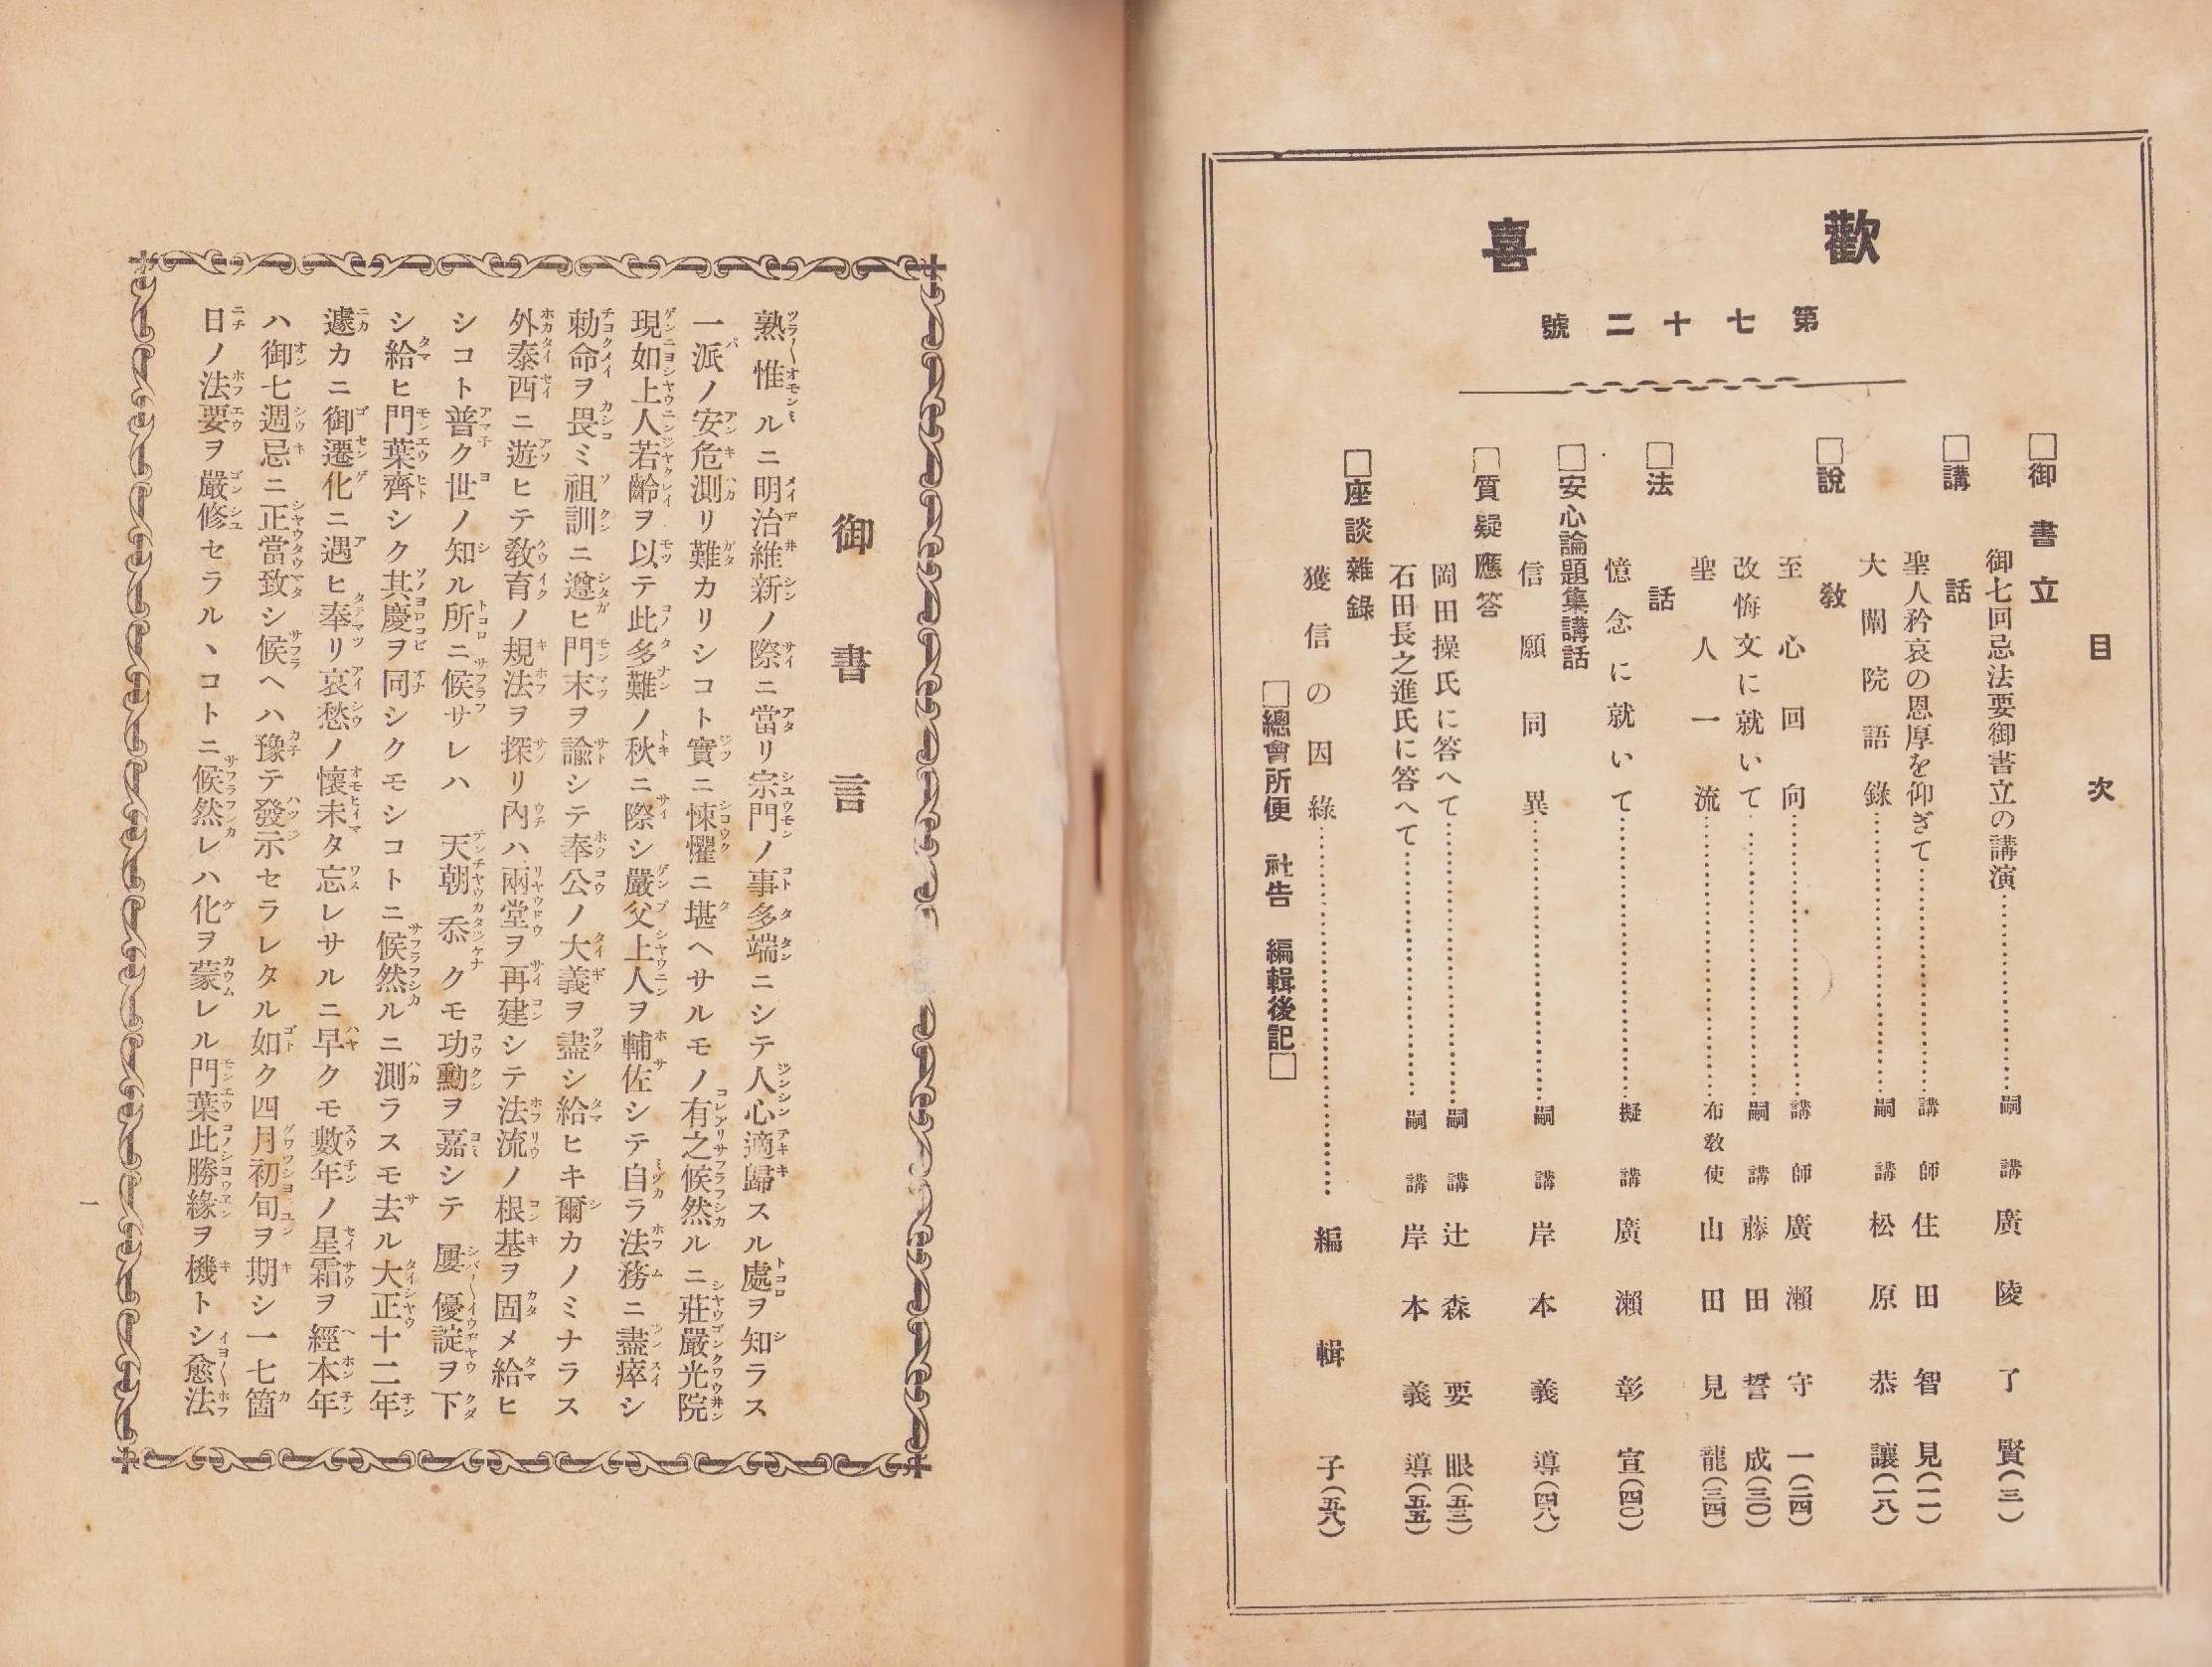 歡喜
第七十二號
目次
□御書立
御七回忌法要御書立の講演……嗣講 廣陵了賢(三)
□講話
聖人矜哀の恩厚を仰ぎて……講師 住田智見(一一)
大闡院語錄……嗣講 松原恭讓(一八)
□說敎
至心回向……講師 廣瀨守一(二四)
改悔文に就いて……嗣講 藤田誓成(三〇)
聖人一流……布敎使 山田見龍(三四)
□法話
憶念に就いて……擬講 廣瀨彰宣(四〇)
□安心論題集講話
信願同異……嗣講 岸本義導(四八)
□質疑應答
岡田操氏に答へて……嗣講 辻森要眼(五三)
石田長之進氏に答へて……嗣講 岸本義導(五五)
□座談雜錄
獲信の因綠……編輯子(五八)
□總會所便 社吿 編輯後記□
御書言
熟惟ルニ明治維新ノ際ニ當リ宗門ノ事多端ニシテ人心適歸スル處ヲ知ラス
一派ノ安危測リ難カリシコト實ニ悚懼ニ堪ヘサルモノ有之候然ルニ莊嚴光院
現如上人若齡ヲ以テ此多難ノ秋ニ際シ嚴父上人ヲ輔佐シテ自ラ法務ニ盡瘁シ
勅命ヲ畏ミ祖訓ニ遵ヒ門末ヲ諭シテ奉公ノ大義ヲ盡シ給ヒキ爾カノミナラス
外泰西ニ遊ヒテ敎育ノ規法ヲ探リ內ハ兩堂ヲ再建シテ法流ノ根基ヲ固メ給ヒ
シコト普ク世ノ知ル所ニ候サレハ 天朝忝クモ功勳ヲ嘉シテ屢優諚ヲ下
シ給ヒ門葉齊シク其慶ヲ同シクモシコトニ候然ルニ測ラスモ去ル大正十二年
遽カニ御遷化ニ遇ヒ奉リ哀愁ノ懷未タ忘レサルニ早クモ數年ノ星霜ヲ經本年
ハ御七週忌ニ正當致シ候ヘハ豫テ發示セラレタル如ク四月初旬ヲ期シ一七箇
日ノ法要ヲ嚴修セラルヽコトニ候然レハ化ヲ蒙レル門葉此勝緣ヲ機トシ愈法
一